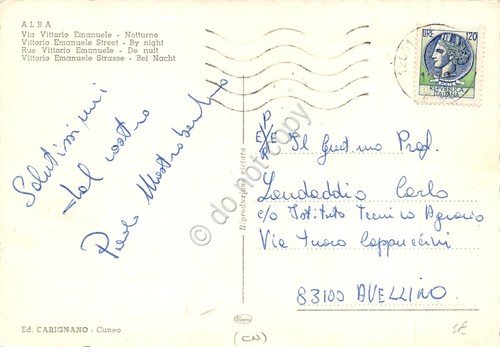 ALBA
Via Vittorio Emanuele - Notturno
Vittorio Emanuele Street - By night
Rue Vittorio Emanuele - De nuit
Vittorio Emanuele Strasse - Bei Nacht
LIRE 120
REPUBBLICA
ITALIANA
Salutissimi
dal vostro
Paolo
Riproduzione vietata
do not copy
Il Gent.mo Prof.
Landaddio Carlo
c/o Istituto Tecnico Agrario
Via Tuoro Cappuccini
83100 AVELLINO
Ed. CARIGNANO - Cuneo
(CN)